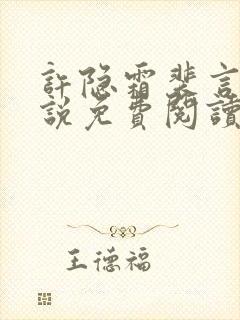 許隐霜裴言
說免費閱讀
王德福